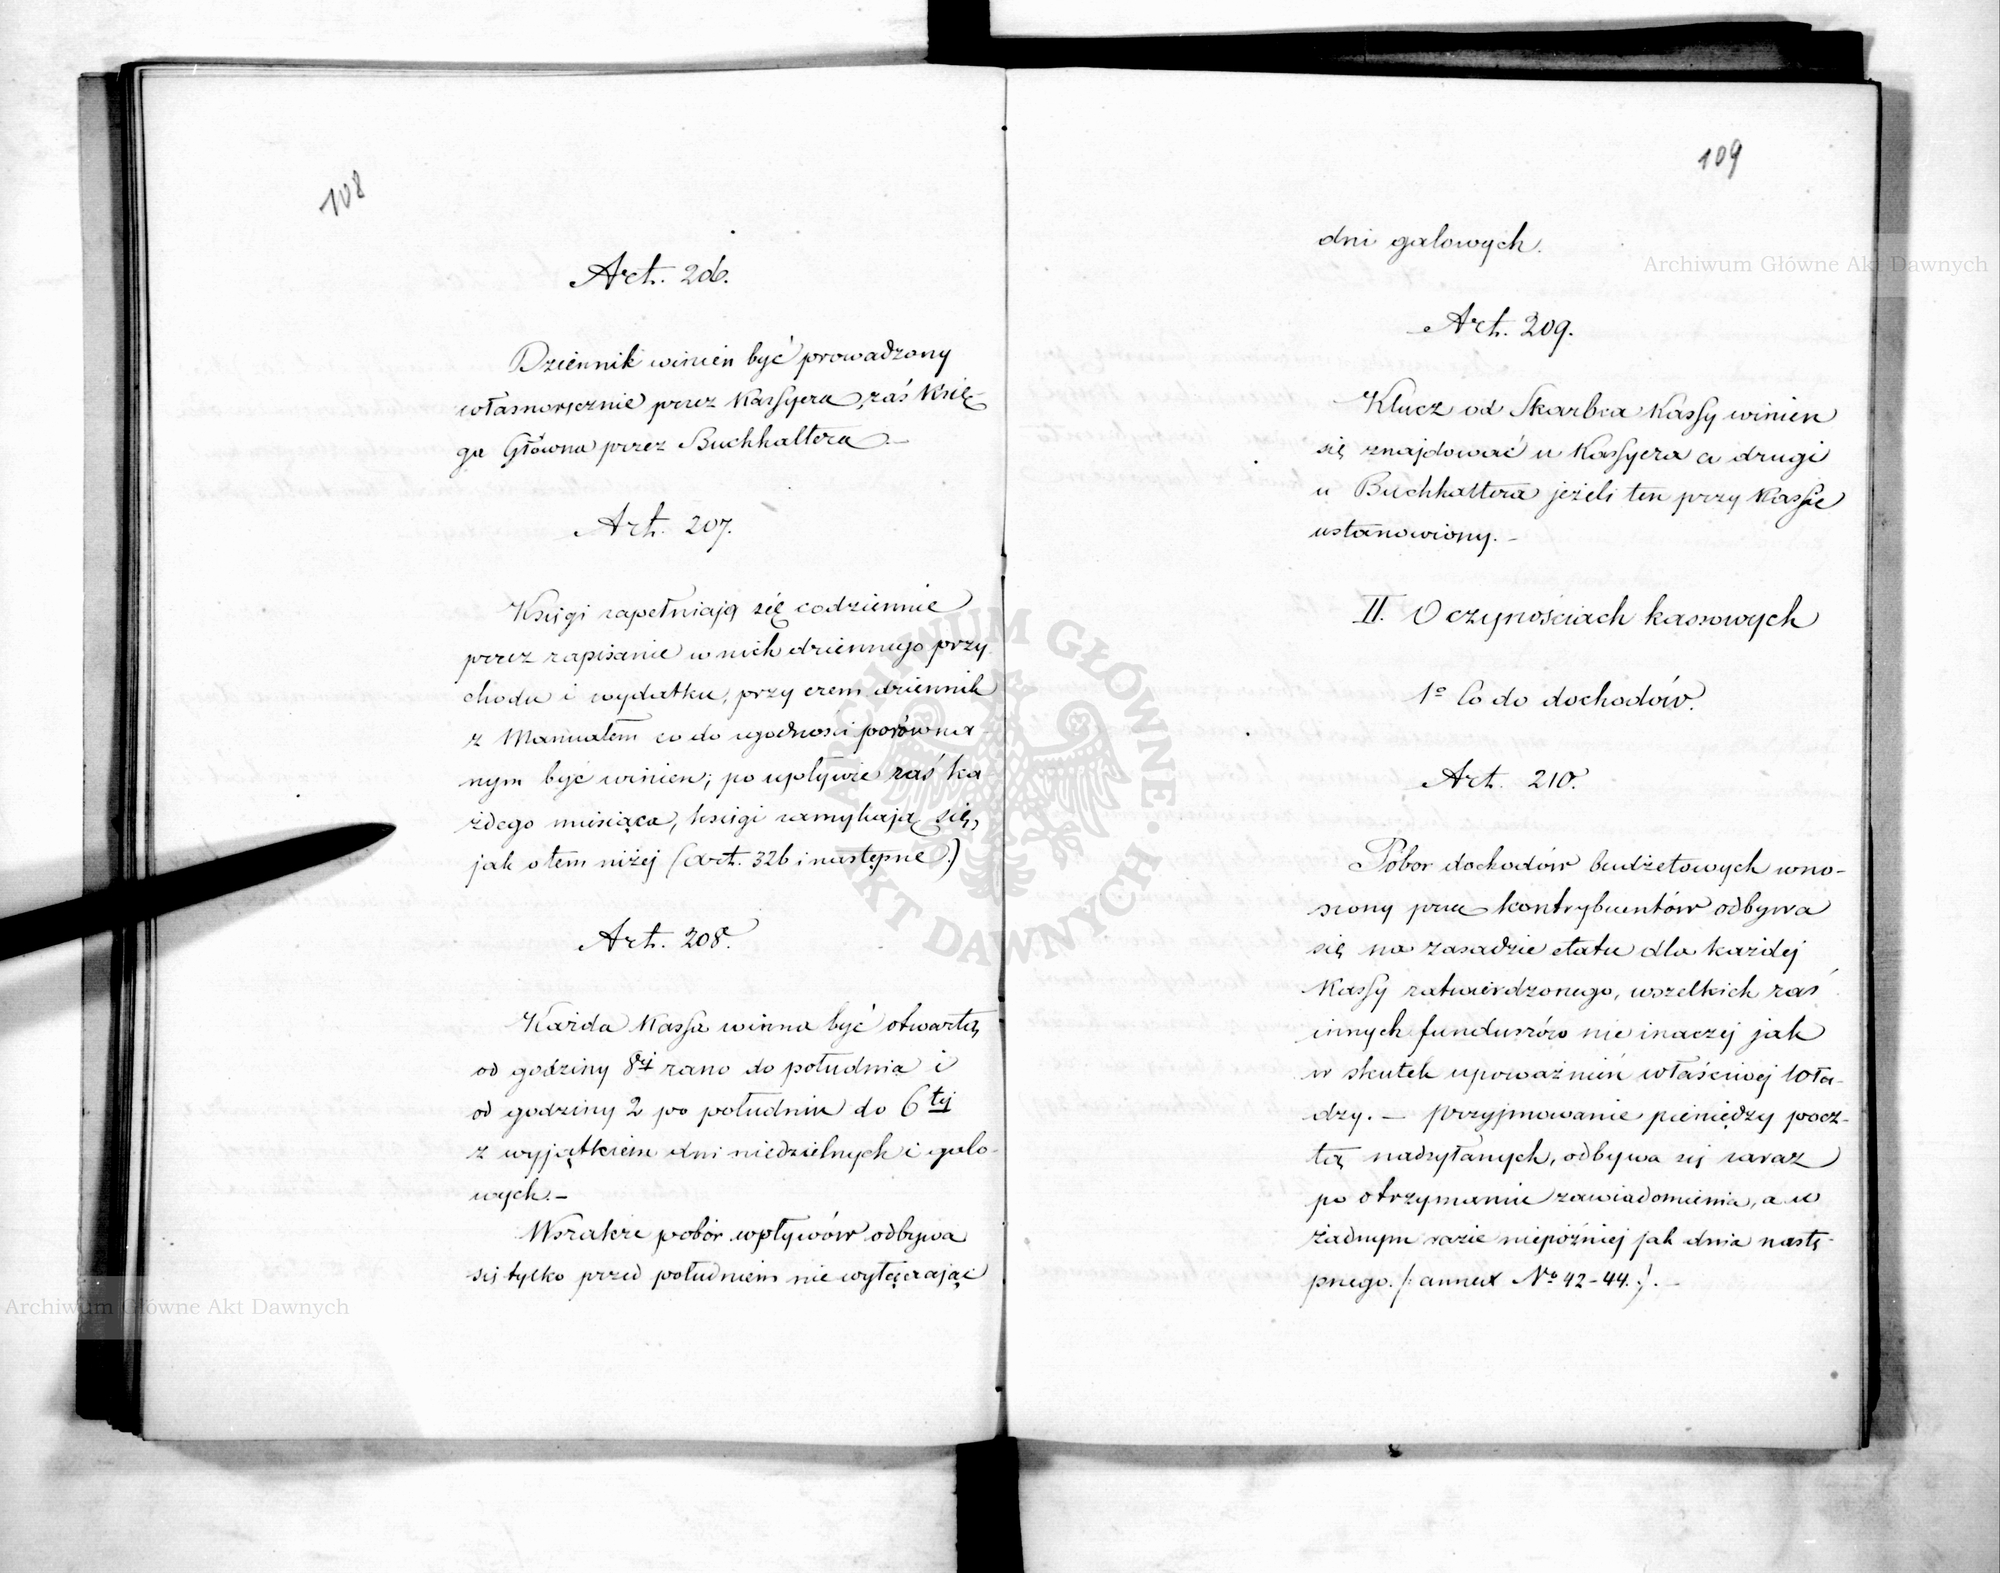 108
Art. 206.
Dziennik winien być prowadzony
własnoręcznie przez Kassyera, zaś Księ-
ga Główna przez Buchhaltera.—
Art. 207.
Księgi zapełniają się codziennie
przez zapisanie w nich dziennego przy-
chodu i wydatku, przy czem dziennik
z Manuałem co do zgodności porówna-
nym być winien; po upływie zaś ka-
żdego miesiąca, księgi zamykają się,
jak o tem niżej (art. 326 i następne.)
Art. 208.
Każda Kassa winna być otwartą
od godziny 8ej rano do południa i
od godziny 2 po południu do 6tej
z wyjątkiem dni niedzielnych i galo-
wych.—
Wszakże pobór wpływów odbywa
się tylko przed południem nie wyłączając
109
dni galowych.
Art. 209.
Klucz od Skarbca Kassy winien
się znajdować u Kassyera a drugi
u Buchhaltera jeżeli ten przy Kassie
ustanowiony.—
II. O czynościach kassowych
1º Co do dochodów.
Art. 210.
Pobor dochodów budżetowych wno-
szony przez kontrybuentów odbywa
się na zasadzie etatu dla każdej
Kassy zatwierdzonego, wszelkich zaś
innych funduszów nie inaczej jak
w skutek upoważnień właściwej Wła-
dzy.— przyjmowanie pieniędzy pocz-
tą nadsyłanych, odbywa się zaraz
po otrzymaniu zawiadomienia, a w
żadnym razie niepóźniej jak dnia nastę-
pnego. /: annex Nº 42-44. :/.—
Archiwum Główne Akt Dawnych
Archiwum Główne Akt Dawnych
ARCHIWUM GŁÓWNE · AKT DAWNYCH ·